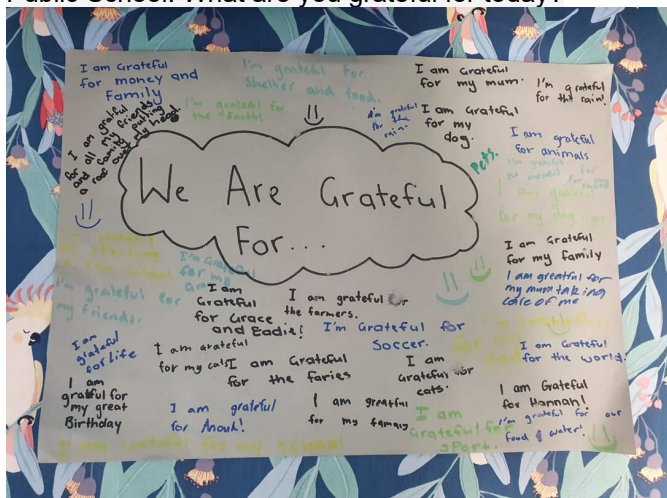 Public School. What are you grateful for today?
I am Grateful
for money and
Family
I'm grateful for
shelter and food.
I am Grateful
for my mum.
I'm grateful
for this rain!
I am grateful
for all my friends
and family putting
a roof over my head.
I'm grateful for
the Earth!
I'm grateful
for the
rain.
I am Grateful
for my
dog.
I am grateful
for animals
Pets.
We Are Grateful
For...
I am grateful
for my dog
I am Grateful
for my family
I am greatful for
my mum taking
care of me
I'm Grateful
for my
I'm grateful for
my friends.
I am
Grateful
for Grace
and Eadie!
I am grateful for
the farmers.
I'm Grateful for
Soccer.
I am
grateful
for Life
I am Grateful
for my cats
I am Grateful
for the faries
I am
Grateful for
cats.
I am Grateful
for the world.
I am
grateful for
my great
Birthday
I am grateful
for Anouk!
I am greatful
for my family
I am
Grateful for
sport.
I am Grateful
for Hannah!
I'm grateful for our
food & water!
I am grateful for my school